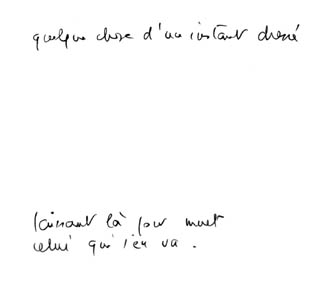 quelque chose d'un instant dressé
laissant là pour mort
celui qui s'en va.